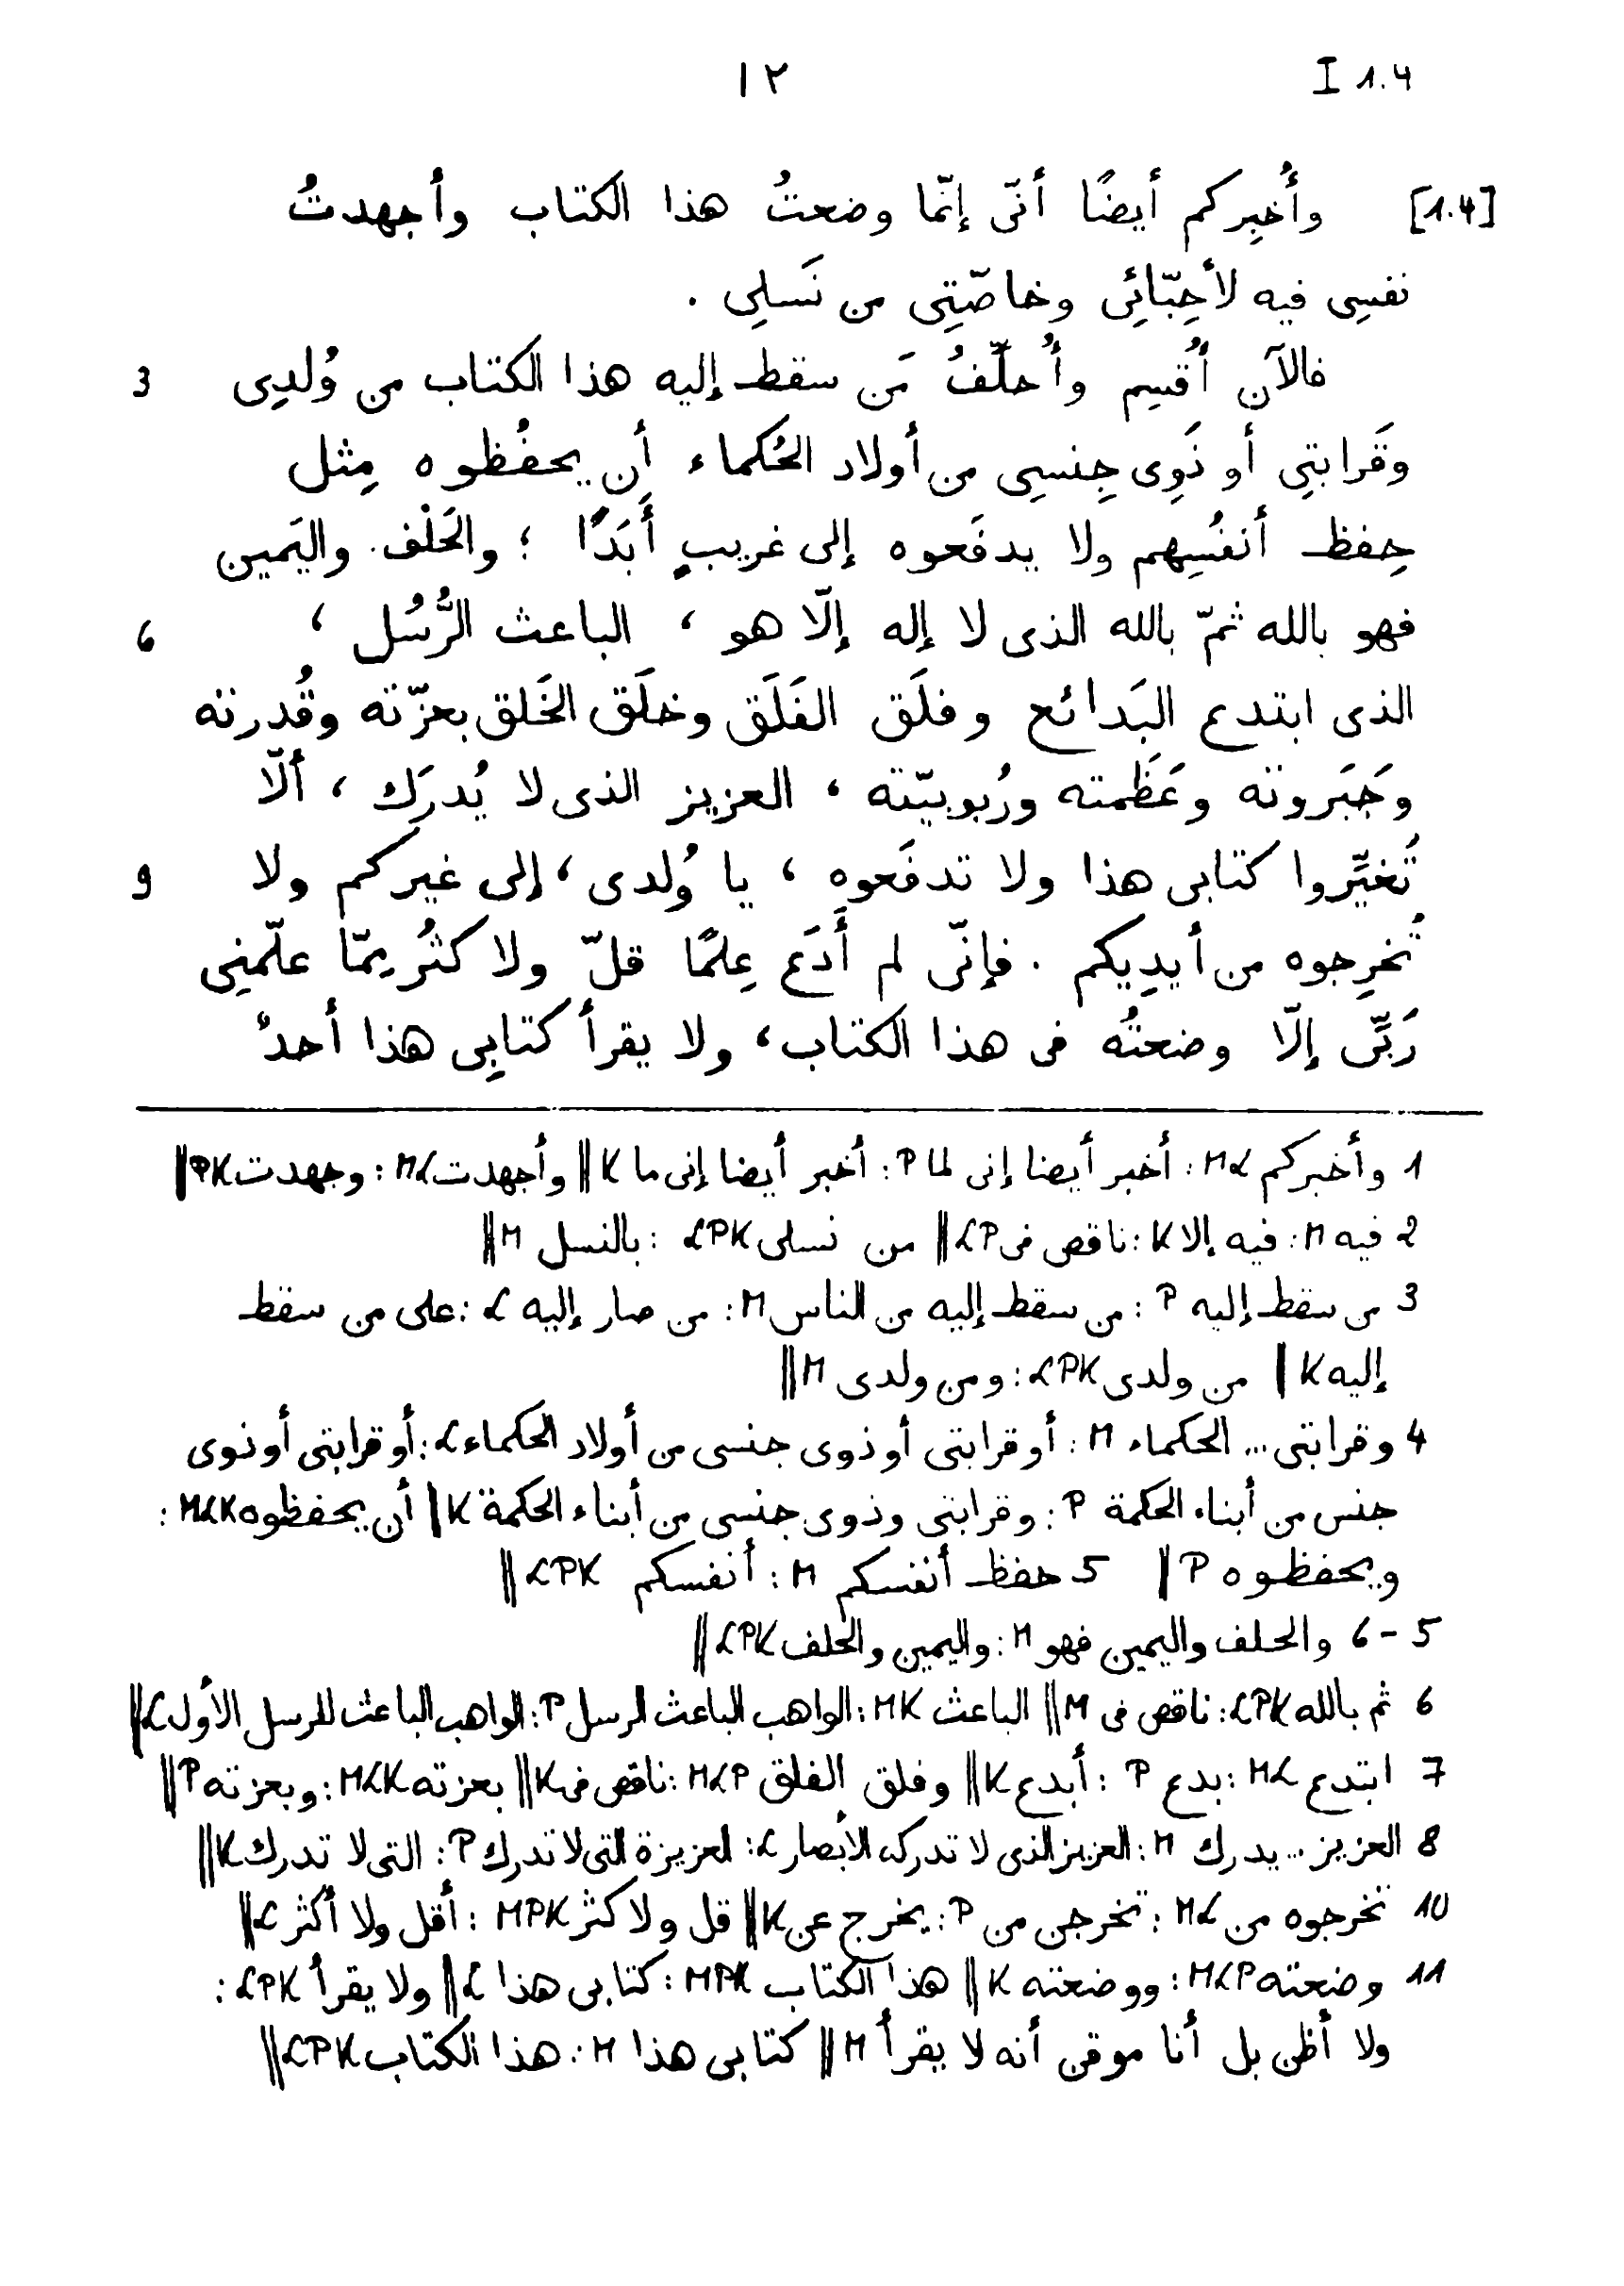 I 1.4 ١٢
[1.4] وأُخبِركم أيضًا أنّى إنّما وضعتُ هذا الكتاب وأجهدتُ
نفسِى فيه لأحِبّائِى وخاصّتِى من نَسلِى .
3 فالآن أُقسِم وأُحلّفُ مَن سقط إليه هذا الكتاب من وُلدِى
وقَرابتِى أو ذَوِى جِنسِى من أولاد الحُكماء أن يحفُظوه مِثل
حِفظ أنفُسِهم ولا يدفَعوه إلى غريبٍ أَبَدًا ؛ والحَلْف واليَمين
6 فهو بالله ثمّ بالله الذى لا إله إلّا هو ، الباعث الرُّسُل ،
الذى ابتدع البَدائع وفلَق الفَلَق وخلَق الخَلق بعزّته وقُدرته
وجَبَروته وعَظَمته ورُبوبيّته ، العزيز الذى لا يُدرَك ، ألّا
9 تُغيِّروا كتابى هذا ولا تدفَعوه ، يا وُلدى ، إلى غيركم ولا
تُخرِجوه من أيدِيكم . فإنّى لم أَدَع عِلمًا قلّ ولا كثُر ممّا علّمنِى
رَبِّى إلّا وضعتُه فى هذا الكتاب ، ولا يقرأ كتابِى هذا أحدٌ
1 وأخبركم ML : أخبر أيضا إنى لما P : أخبر أيضا إنى ما K || وأجهدت ML : وجهدت PK ||
2 فيه M : فيه إلا K : ناقص فى LP || من نسلى LPK : بالنسل M ||
3 من سقط إليه P : من سقط إليه من الناس M : من صار إليه L : على من سقط
إليه K || من ولدى LPK : ومن ولدى M ||
4 وقرابتى ... الحكماء M : أو قرابتى أو ذوى جنسى من أولاد الحكماء L : أو قرابتى أو ذوى
جنس من أبناء الحكمة P : وقرابتى وذوى جنسى من أبناء الحكمة K || أن يحفظوه MLK :
ويحفظوه P || 5 حفظ أنفسكم M : أنفسكم LPK ||
5 - 6 والحلف واليمين فهو M : واليمين والحلف LPK ||
6 ثم بالله LPK : ناقص فى M || الباعث MK : الواهب الباعث الرسل P : الواهب الباعث للرسل الأول L ||
7 ابتدع ML : بدع P : أبدع K || وفلق الفلق MLP : ناقص فى K || بعزته MLK : وبعزته P ||
8 العزيز ... يدرك M : العزيز الذى لا تدركه الأبصار L : لعزيزة التى لا تدرك P : التى لا تدرك K ||
10 تخرجوه من ML : تخرجى من P : يخرج عن K || قل ولا كثر MPK : أقل ولا أكثر L ||
11 وضعته MLP : ووضعته K || هذا الكتاب MPK : كتابى هذا L || ولا يقرأ LPK :
ولا أظن بل أنا موقن أنه لا يقرأ M || كتابى هذا M : هذا الكتاب LPK ||